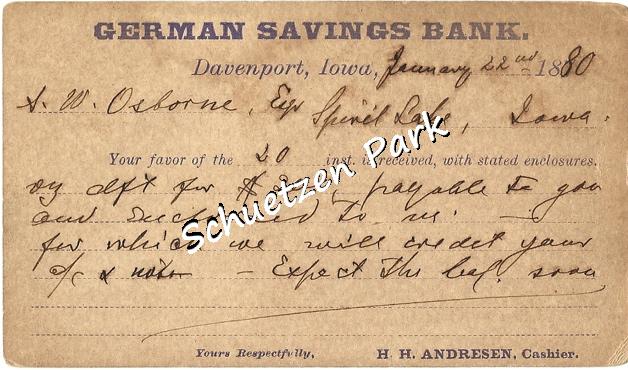 GERMAN SAVINGS BANK.
Davenport, Iowa, January 22nd 1880
A. W. Osborne, Eqr
Spirit Lake, Iowa.
Your favor of the 20 inst. is received, with stated enclosures.
dft for $ payable to you
and to us. —
for which we will credit your
a/c & note — Expect the bal. soon
Yours Respectfully, H. H. ANDRESEN, Cashier.
Schuetzen Park